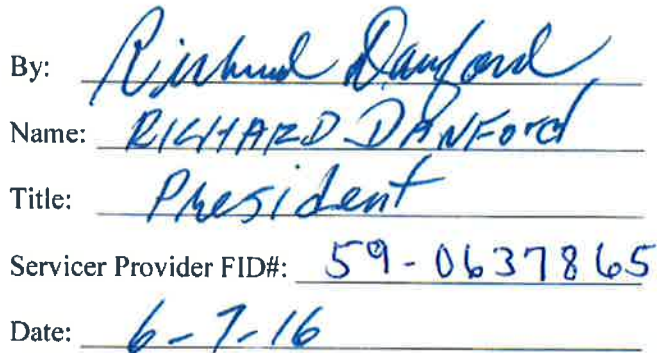 By: Richard Danford
Name: RICHARD DANFord
Title: President
Servicer Provider FID#: 59-0637865
Date: 6-7-16